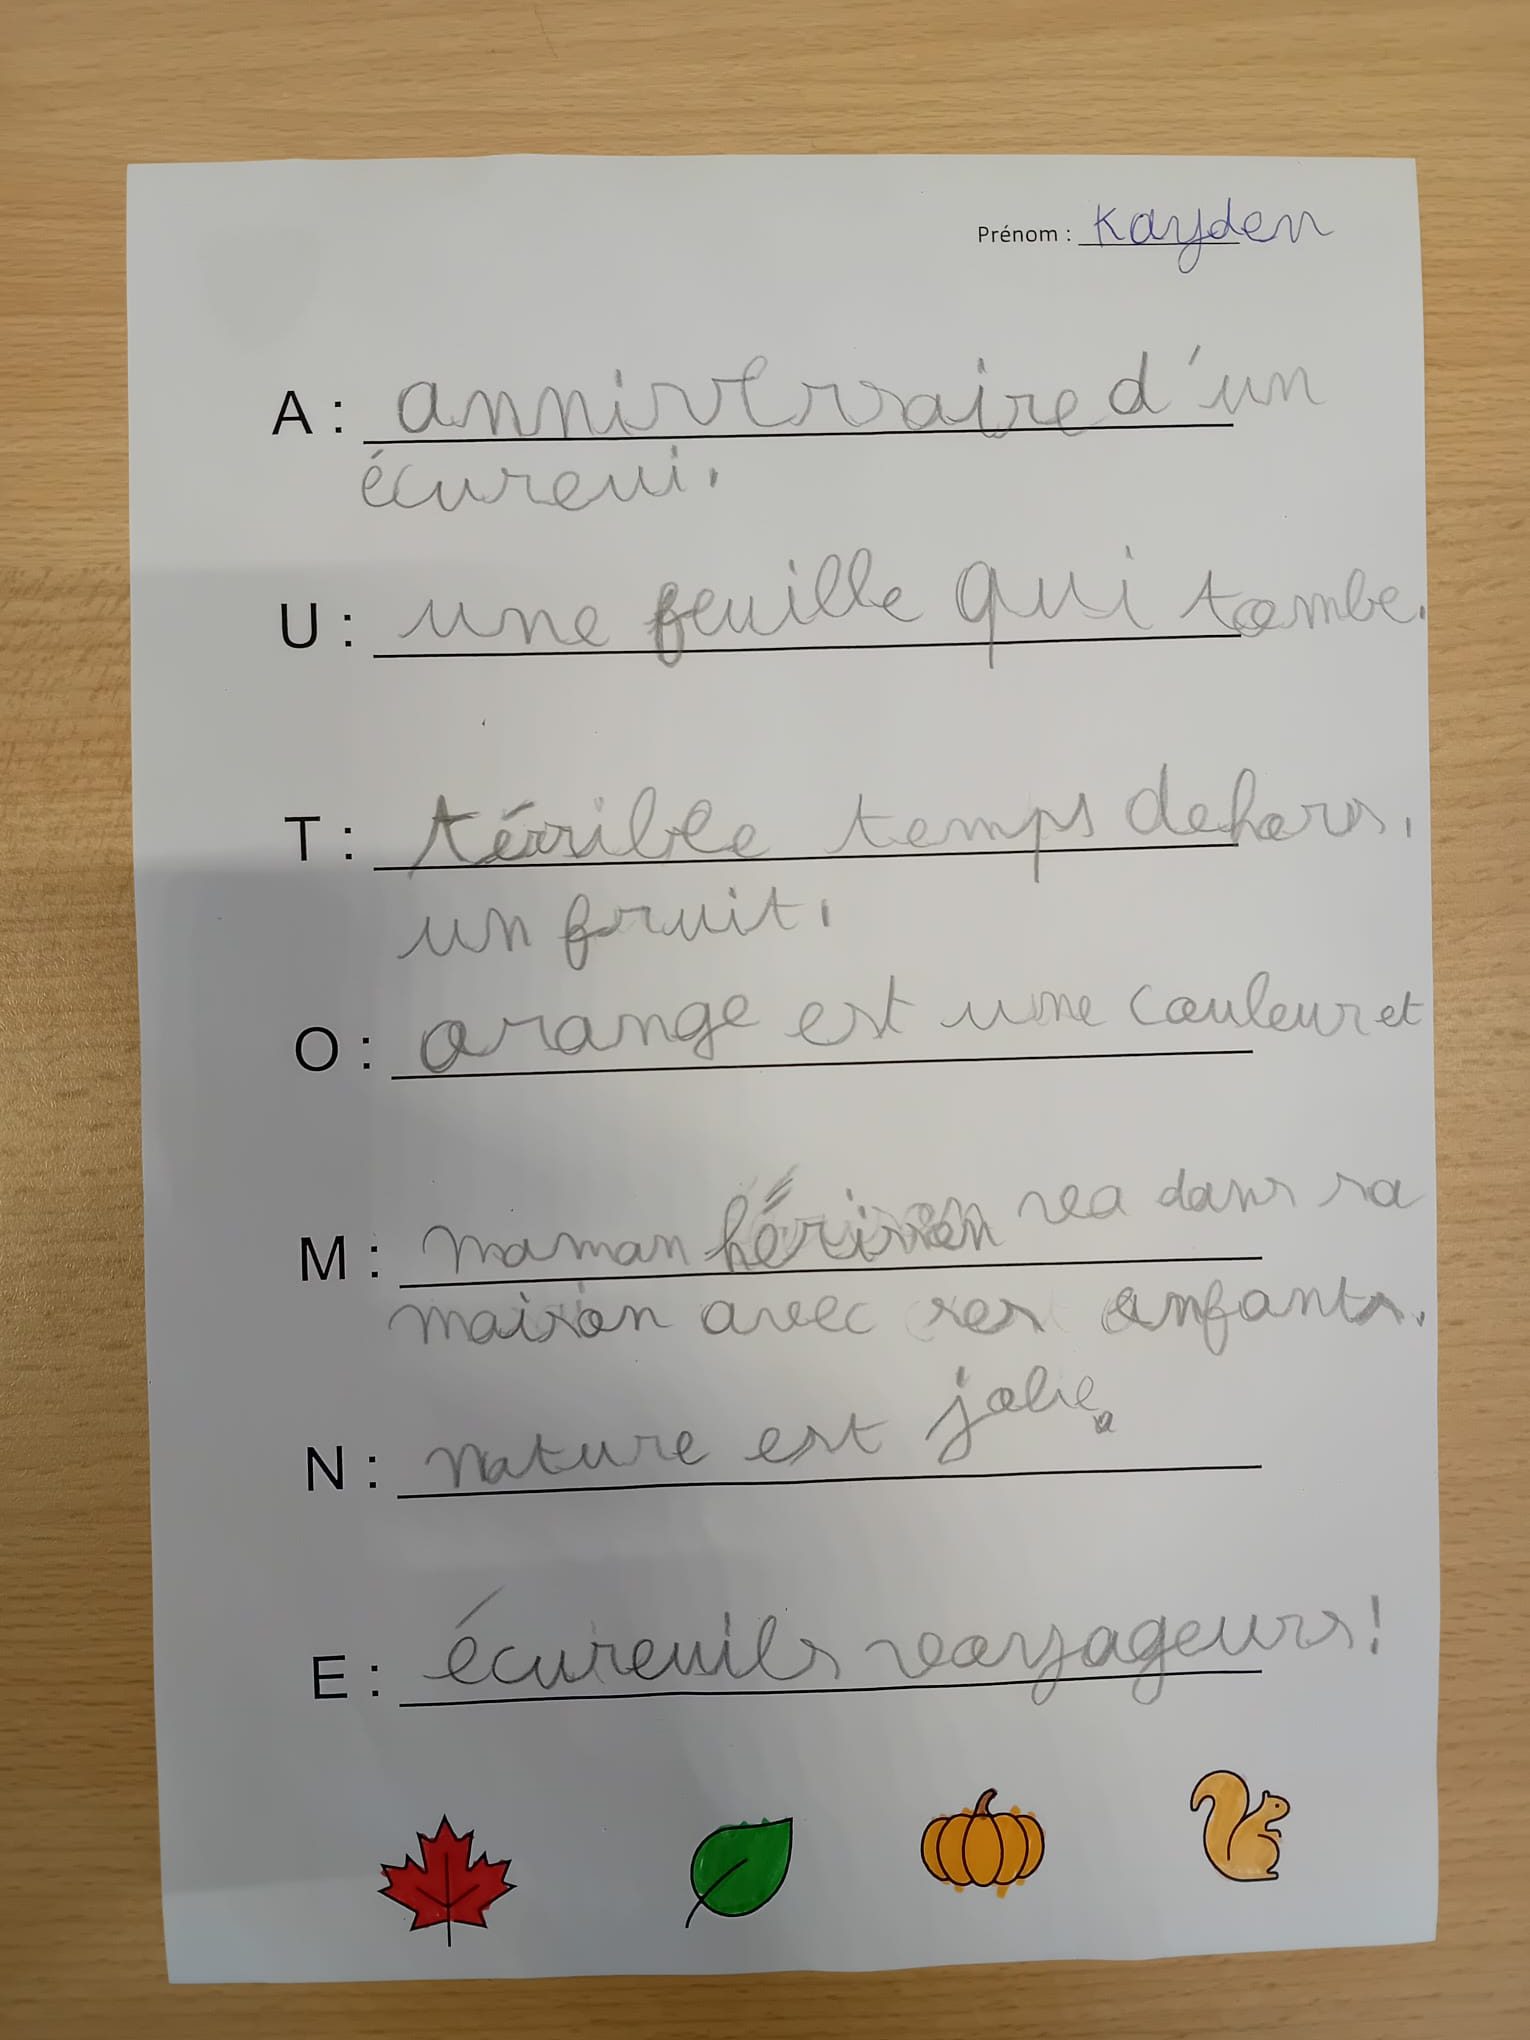 Prénom : Kayden
A : anniversaire d'un
écureui.
U : une feuille qui tombe.
T : térrible temps dehors.
un fruit.
O : orange est une couleur et
M : maman hérisson va dans sa
maison avec ses enfants.
N : nature est jolie.
E : écureuils voyageurs!